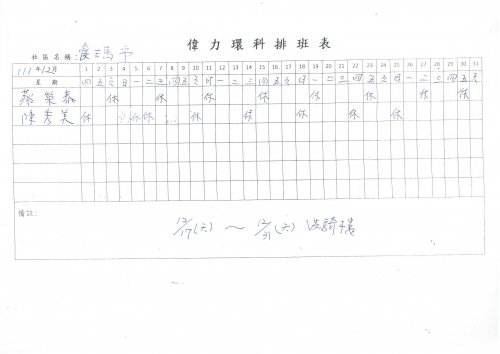 偉力環科排班表
社區名稱:愛瑪市
111年12月 1 2 3 4 5 6 7 8 9 10 11 12 13 14 15 16 17 18 19 20 21 22 23 24 25 26 27 28 29 30 31
星期 四 五 六 日 一 二 三 四 五 六 日 一 二 三 四 五 六 日 一 二 三 四 五 六 日 一 二 三 四 五 六
榮泰 休 休 休 休 休 休 休 休
陳秀美 休 休 休 休 休 休 休 休
備註:
12/17(六) ～ 12/31(六) 洗